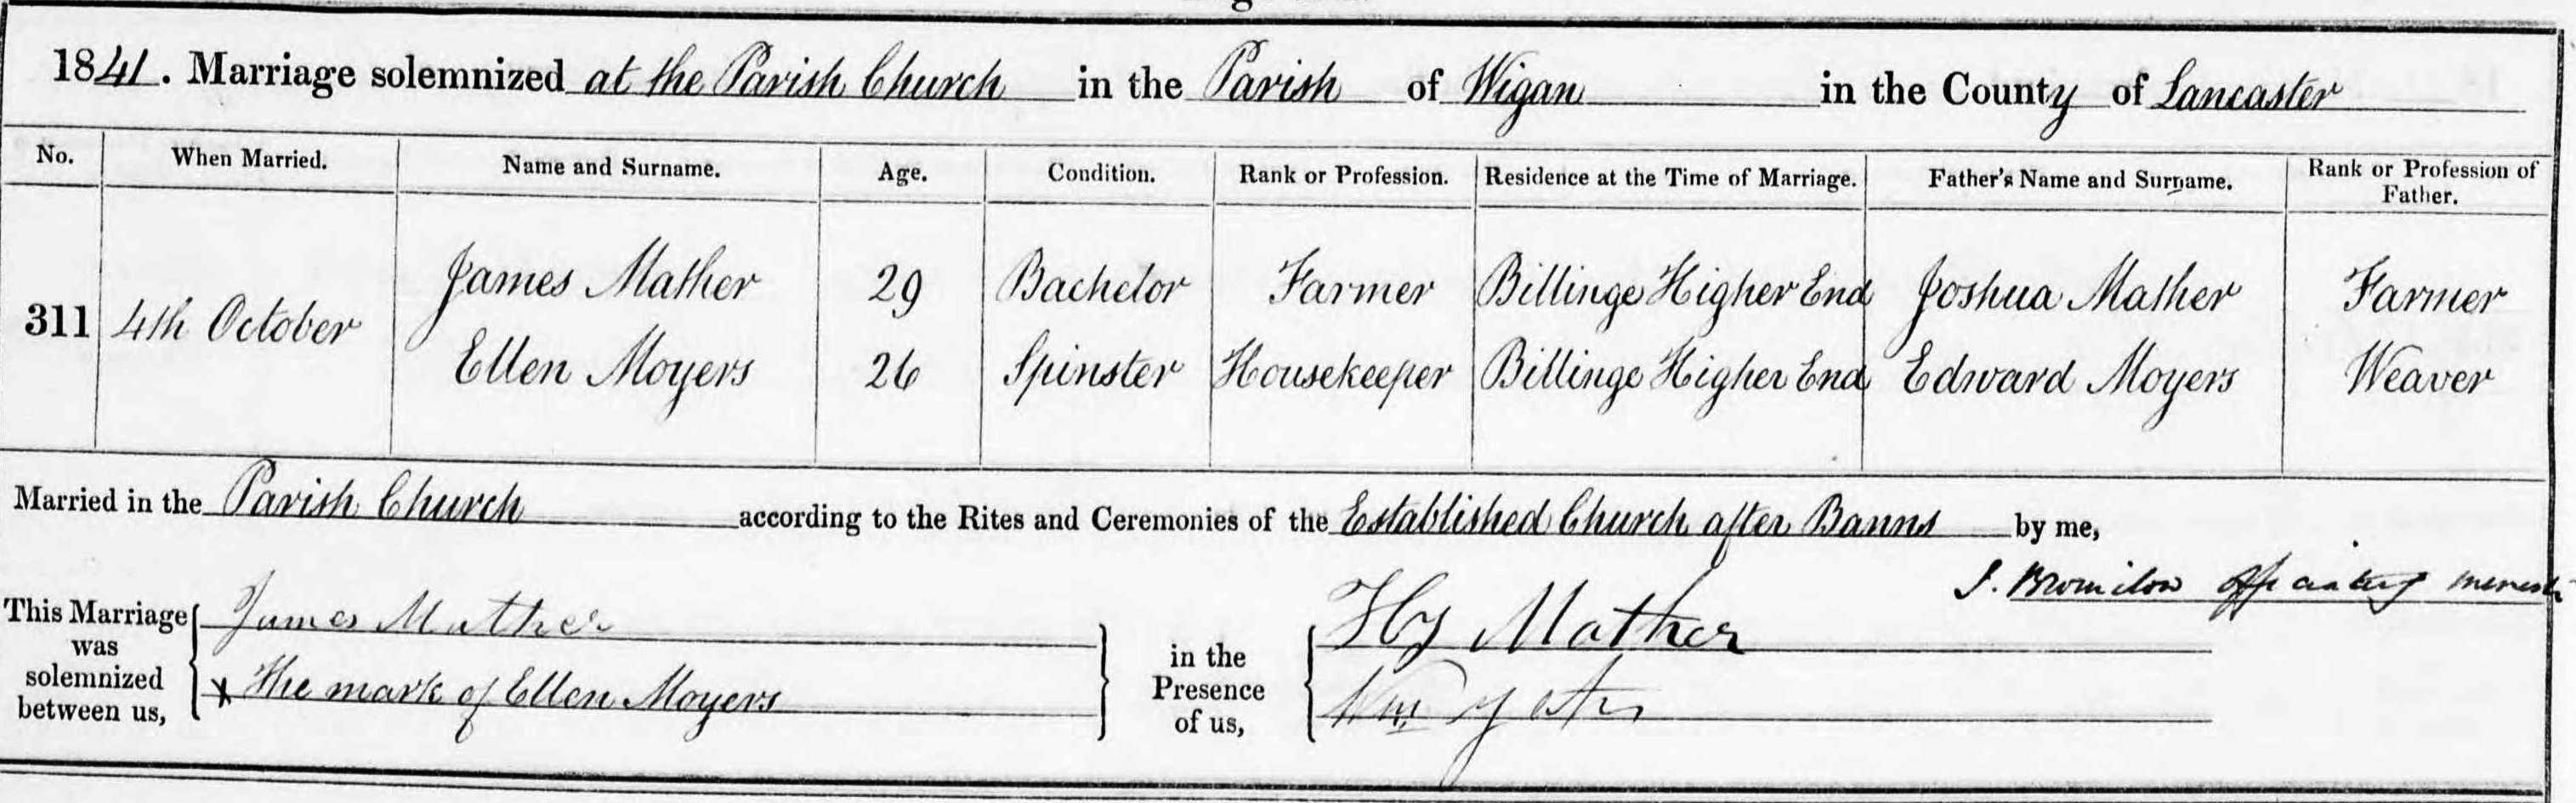 1841. Marriage solemnized at the Parish Church in the Parish of Wigan in the County of Lancaster
No. When Married. Name and Surname. Age. Condition. Rank or Profession. Residence at the Time of Marriage. Father's Name and Surname. Rank or Profession of Father.
James Mather 29 Bachelor Farmer Billinge Higher End Joshua Mather Farmer
311 4th October
Ellen Moyers 26 Spinster Housekeeper Billinge Higher End Edward Moyers Weaver
Married in the Parish Church according to the Rites and Ceremonies of the Established Church after Banns by me,
J. Bromilow officiating
This Marriage was solemnized between us,
James Mather
x The mark of Ellen Moyers
in the Presence of us,
Hy Mather
Wm Yates